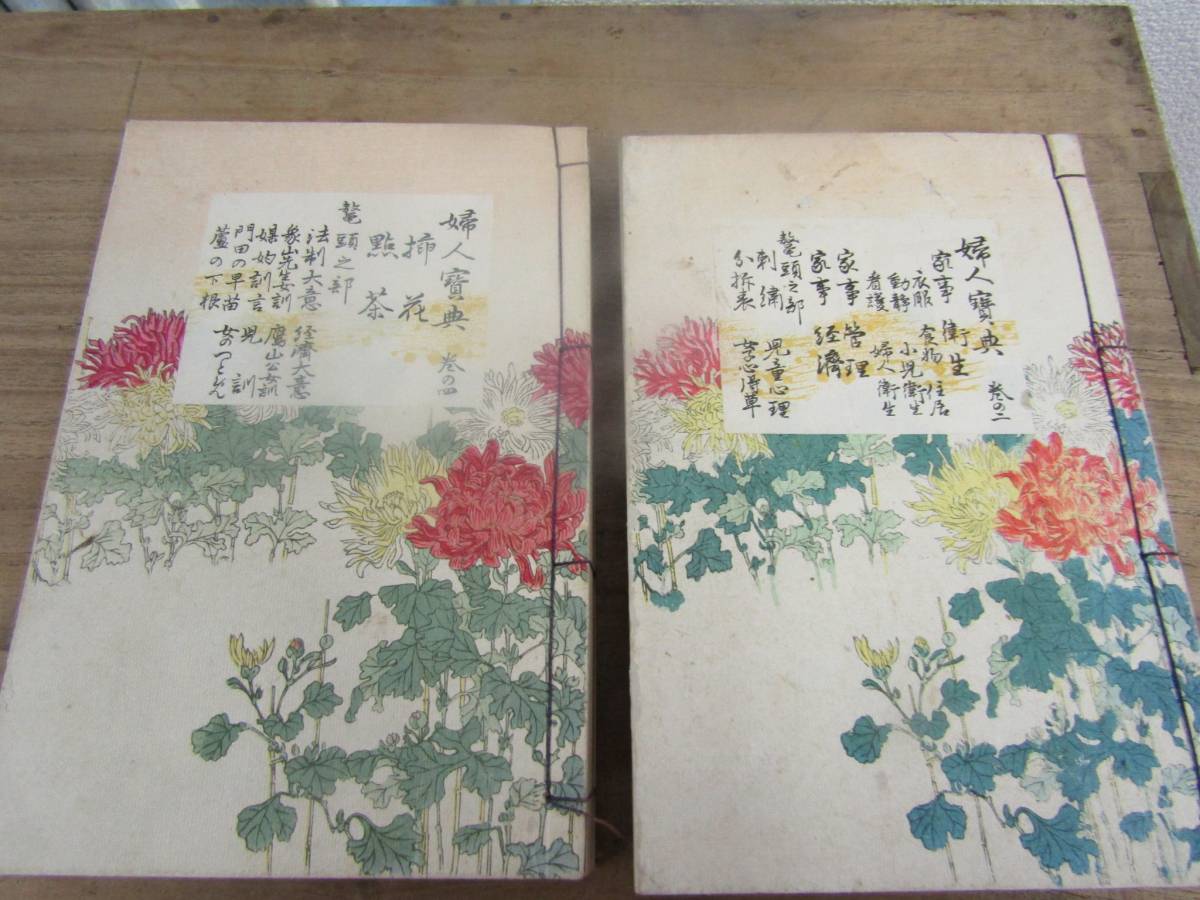 婦人寶典 巻の四
挿花
點茶
鼇頭之部
法制大意 経済大意
象山先生女訓 鷹山公女訓
媒妁訓言 児訓
門田の早苗 女のつとめ
蘆の下根
婦人寶典 巻の二
家事衛生
衣服 食物 住居
動静 小児衛生
看護 婦人衛生
家事管理
家事経済
鼇頭之部
刺繍 児童心理
分拆表 女心得草